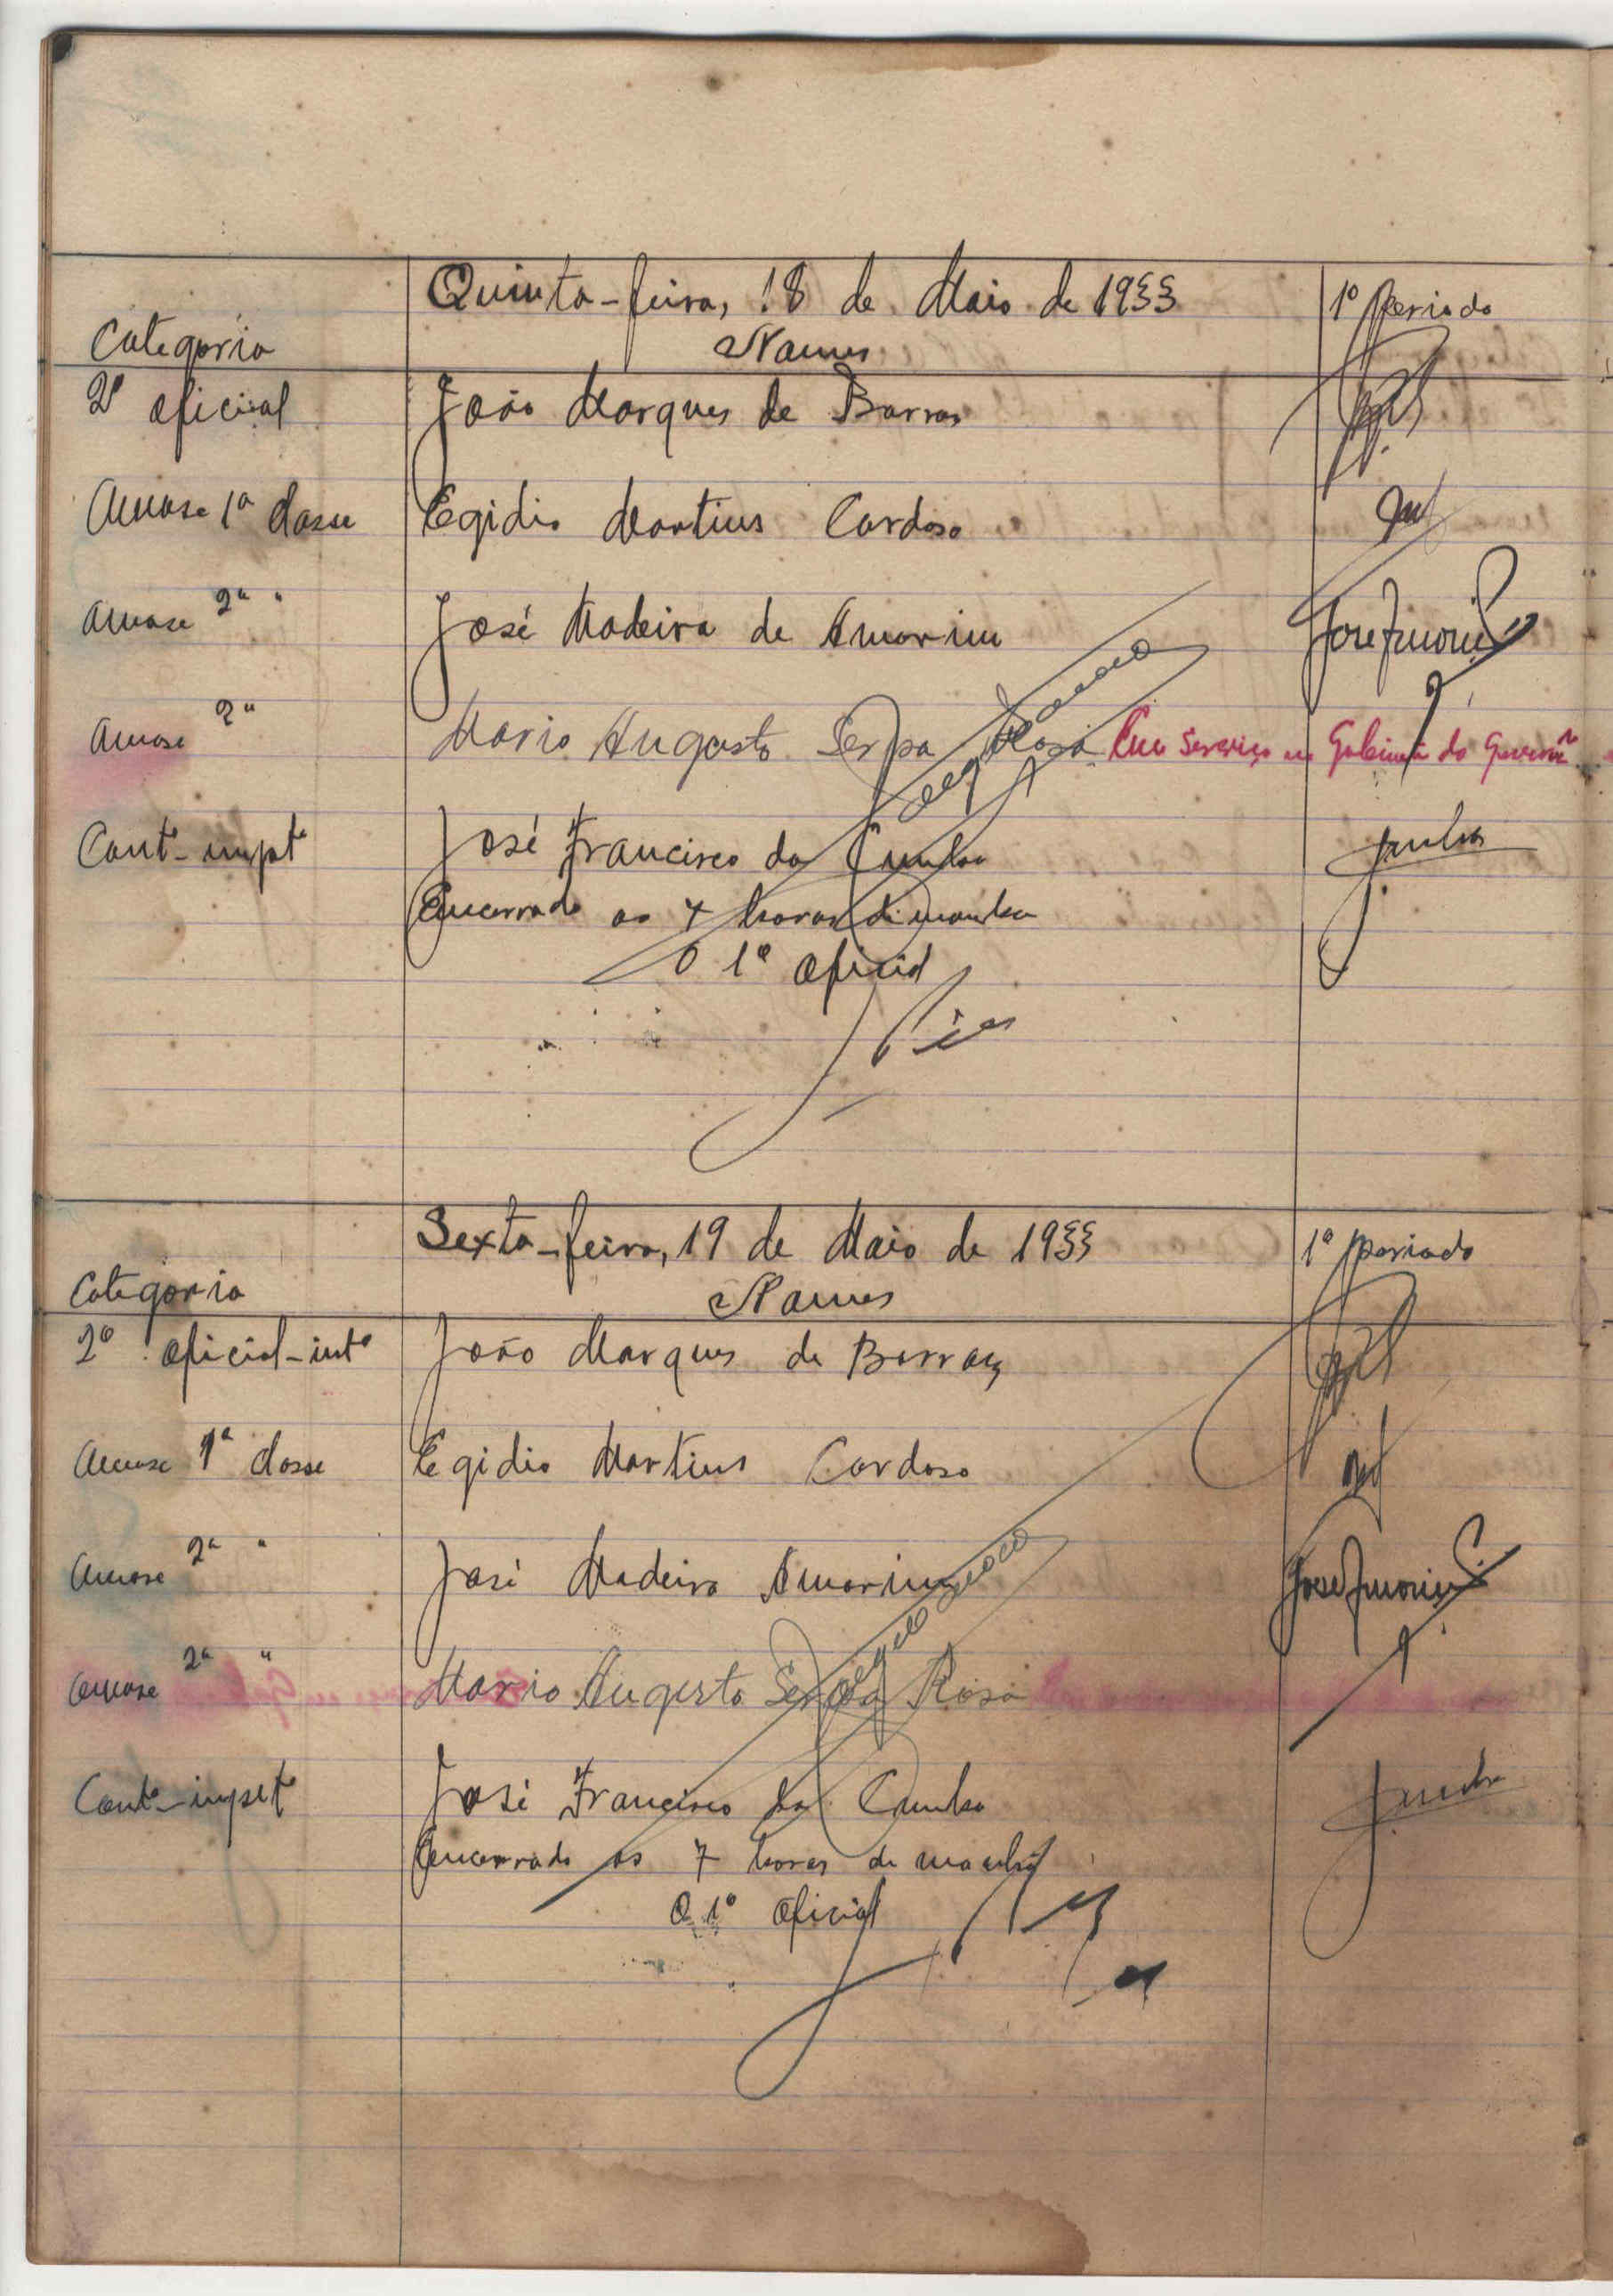 Quinta-feira, 18 de Maio de 1933
1º Periodo
Categoria
Nomes
2º oficial
João Marques de Barros
1ª classe
Egidio Martins Cardoso
2ª "
José Madeira de Amorim
José Amorim
2ª
Mario Augusto Serpa Rosa Em Serviço no Gabinete do Governo
Contº-impt
José Francisco da Cunha
Cunha
Encerrado as 7 horas da manha
O 1º oficial
Pires
Sexta-feira, 19 de Maio de 1933
1º periodo
Categoria
Nomes
2º oficial-intº
João Marques de Barros
1ª classe
Egidio Martins Cardoso
2ª "
José Madeira Amorim
José Amorim
2ª "
Mario Augusto Serpa Rosa
Contº-impt
José Francisco da Cunha
Cunha
Encerrado as 7 horas da manhã
O 1º oficial